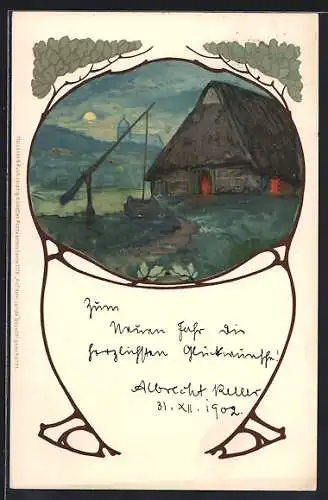 Zum
Neuen Jahr die
herzlichsten Glückwünsche!
Albrecht Keller
31. XII. 1902.